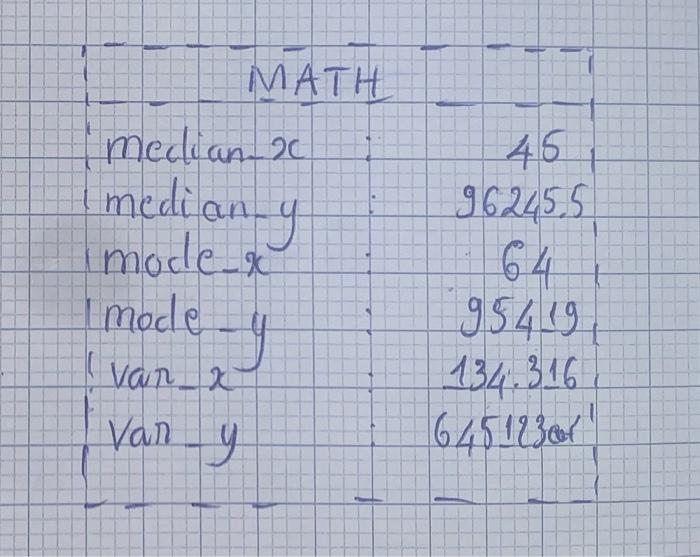 MATH
median_x : 45
median_y : 96245.5
mode_x : 64
mode_y : 95419
var_x : 134.316
var_y :